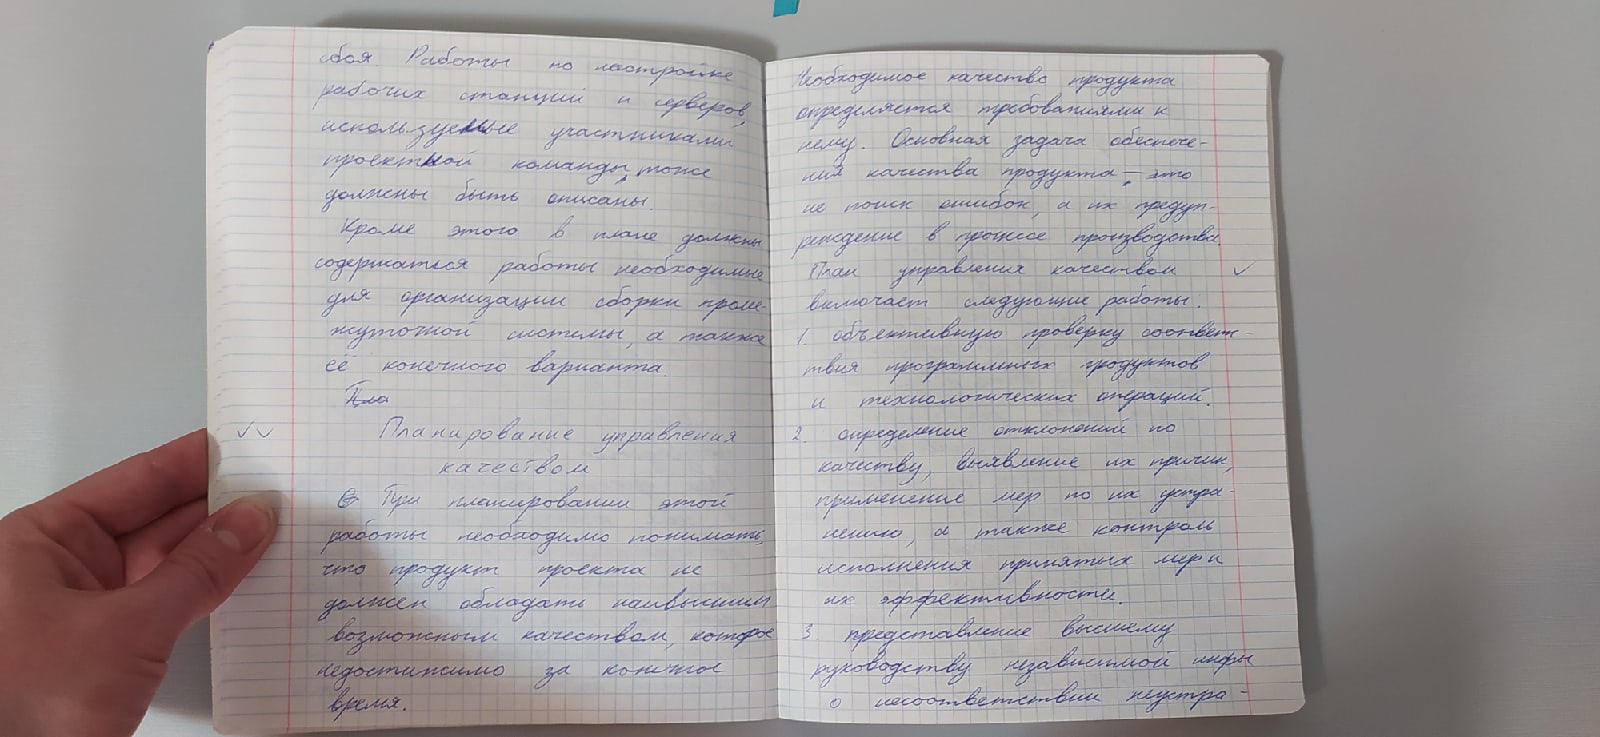 сбоя. Работы по настройке
рабочих станций и серверов,
используемые участниками
проектной команды, тоже
должны быть описаны.
Кроме этого в плане должны
содержаться работы необходимые
для организации сборки проме-
жуточной системы, а также
её конечного варианта.
Пла
Планирование управления
качеством
При планировании этой
работы необходимо понимать,
что продукт проекта не
должен обладать наивысшим
возможным качеством, которое
недостижимо за конечное
время.
Необходимое качество продукта
определяется требованиями к
нему. Основная задача обеспече-
ния качества продукта – это
не поиск ошибок, а их предуп-
реждение в процессе производства.
План управления качеством
включает следующие работы:
1. объективную проверку соответ-
ствия программных продуктов
и технологических операций.
2. определение отклонений по
качеству, выявление их причин,
применение мер по их устра-
нению, а также контроль
исполнения принятых мер и
их эффективности.
3 представление высшему
руководству независимой инфы
о несоответствии неустра-